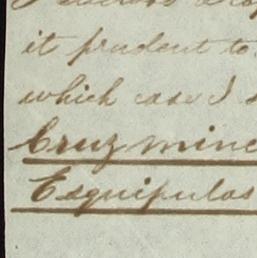 it prudent to
which case I
Cruz mine
Esquipulas